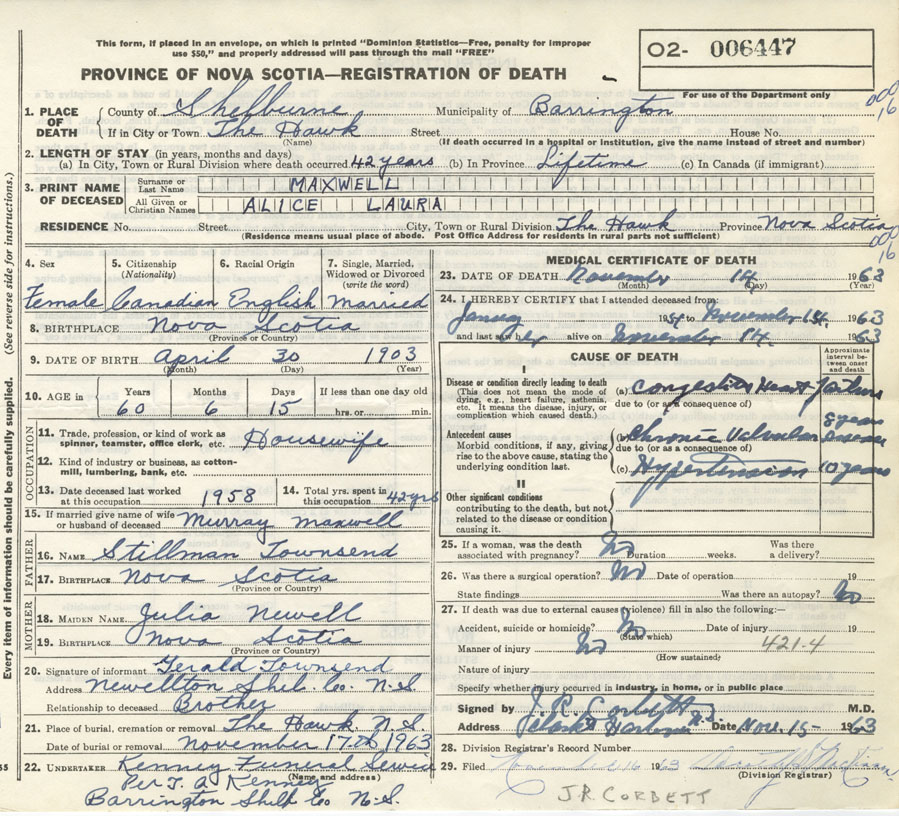 This form, if placed in an envelope, on which is printed "Dominion Statistics—Free, penalty for improper
use $50," and properly addressed will pass through the mail "FREE"
O2- 006447
PROVINCE OF NOVA SCOTIA—REGISTRATION OF DEATH
For use of the Department only
000
16
1. PLACE OF DEATH County of Shelburne Municipality of Barrington
If in City or Town The Hawk Street House No.
(Name) (If death occurred in a hospital or institution, give the name instead of street and number)
2. LENGTH OF STAY (in years, months and days)
(a) In City, Town or Rural Division where death occurred 42 years (b) In Province Lifetime (c) In Canada (if immigrant)
3. PRINT NAME OF DECEASED Surname or Last Name MAXWELL
All Given or Christian Names ALICE LAURA
RESIDENCE No. Street City, Town or Rural Division The Hawk Province Nova Scotia
(Residence means usual place of abode. Post Office Address for residents in rural parts not sufficient)
000
16
(See reverse side for instructions.)
Every item of information should be carefully supplied.
55
4. Sex 5. Citizenship (Nationality) 6. Racial Origin 7. Single, Married, Widowed or Divorced (write the word)
Female Canadian English Married
8. BIRTHPLACE Nova Scotia
(Province or Country)
9. DATE OF BIRTH April 30 1903
(Month) (Day) (Year)
10. AGE in Years Months Days If less than one day old
60 6 15 hrs. or min.
OCCUPATION
11. Trade, profession or kind of work as spinner, teamster, office clerk, etc. Housewife
12. Kind of industry or business, as cotton-mill, lumbering, bank, etc.
13. Date deceased last worked at this occupation 1958 14. Total yrs. spent in this occupation 42 yrs
15. If married give name of wife or husband of deceased Murray Maxwell
FATHER
16. NAME Stillman Townsend
17. BIRTHPLACE Nova Scotia
(Province or Country)
MOTHER
18. MAIDEN NAME Julia Newell
19. BIRTHPLACE Nova Scotia
(Province or Country)
20. Signature of informant Gerald Townsend
Address Newellton Shel. Co. N.S.
Relationship to deceased Brother
21. Place of burial, cremation or removal The Hawk N.S.
Date of burial or removal November 17th 1963
22. UNDERTAKER Kenney Funeral Service
(Name and address)
Per J. A. Kenney
Barrington Shelb Co N.S.
MEDICAL CERTIFICATE OF DEATH
23. DATE OF DEATH November 14 1963
(Month) (Day) (Year)
24. I HEREBY CERTIFY that I attended deceased from:
January 19 to November 14 1963
and last saw her alive on November 14 1963
CAUSE OF DEATH
Approximate interval between onset and death
I
Disease or condition directly leading to death
(This does not mean the mode of dying, e.g., heart failure, asthenia, etc. It means the disease, injury, or complication which caused death.)
(a) Congestive Heart Failure
due to (or as a consequence of)
8 years
Antecedent causes
Morbid conditions, if any, giving rise to the above cause, stating the underlying condition last.
Chronic Valvular disease
due to (or as a consequence of)
(c) Hypertension 10 years
II
Other significant conditions
contributing to the death, but not related to the disease or condition causing it.
25. If a woman, was the death associated with pregnancy? No Duration weeks. Was there a delivery?
26. Was there a surgical operation? No Date of operation 19
State findings Was there an autopsy? No
27. If death was due to external causes (violence) fill in also the following:—
Accident, suicide or homicide? No Date of injury 19
(State which)
Manner of injury No 421.4
(How sustained)
Nature of injury
Specify whether injury occurred in industry, in home, or in public place
Signed by J. R. Corbett M.D.
Address Clark's Harbour N.S. Date Nov. 15- 1963
28. Division Registrar's Record Number
29. Filed November 16 1963
(Division Registrar)
J.R. CORBETT